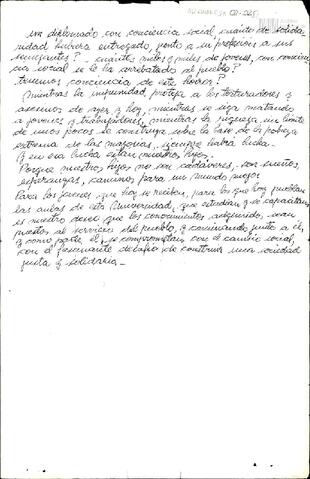 un diplomado con conciencia social, cuánto de solida-
ridad hubiera entregado, junto a su profesión a sus
semejantes? cuántos miles y miles de jóvenes, con concien-
cia social se le ha arrebatado al pueblo?
tenemos conciencia de este horror?
Mientras la impunidad, proteja a los torturadores y
asesinos de ayer y hoy, mientras se siga matando
a jóvenes y trabajadores, mientras la riqueza sin límite
de unos pocos se construya sobre la base de la pobreza
extrema de las mayorías, siempre habrá lucha.
Y en esa lucha están nuestros hijos.
Porque nuestros hijos no son cadáveres, son sueños,
esperanzas, caminos para un mundo mejor
Para los jóvenes que hoy se reciben, para los que hoy pueblan
las aulas de esta Universidad, que estudian y se capacitan
es nuestro deseo que los conocimientos adquiridos, sean
puestos al servicio del pueblo, y caminando junto a él,
y como parte de él, se comprometan con el cambio social,
con el fascinante desafío de construir una sociedad
justa y solidaria.